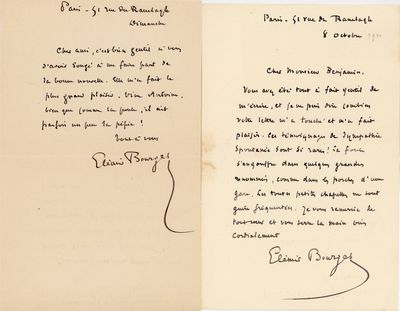 Paris - 51 rue du Ranelagh
Dimanche
Cher ami, c'est bien gentil à vous
d'avoir songé à me faire part de
la bonne nouvelle. Elle m'a fait le
plus grand plaisir. Vive Antoine,
bien que comme la poule, il ait
parfois un peu la pépie !
Tout à vous
Elémir Bourges
Paris - 51 rue du Ranelagh
8 Octobre
Cher Monsieur Benjamin,
Vous avez été tout à fait gentil de
m'écrire, et je ne puis dire combien
votre lettre m'a touché et m'a fait
plaisir. Ces témoignages de sympathie
spontanée sont si rares! La foule
s'engouffre dans quelques grandes
renommées, comme dans les porches d'une
gare. Les toutes petites chapelles ne sont
guère fréquentées. Je vous remercie de
tout cœur et vous serre la main bien
cordialement
Elémir Bourges